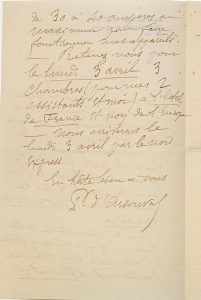 de 30 à 40 ampères au
maximum pour faire
fonctionner mes appareils.
Retenez nous pour
le lundi 3 avril 3
chambres (pour mes 2
assistants et moi) à l'hotel
de France et non de l'Europe
Nous arriverons le
lundi 3 avril par le
express.
En hâte bien à vous
Dr d'Arsonval